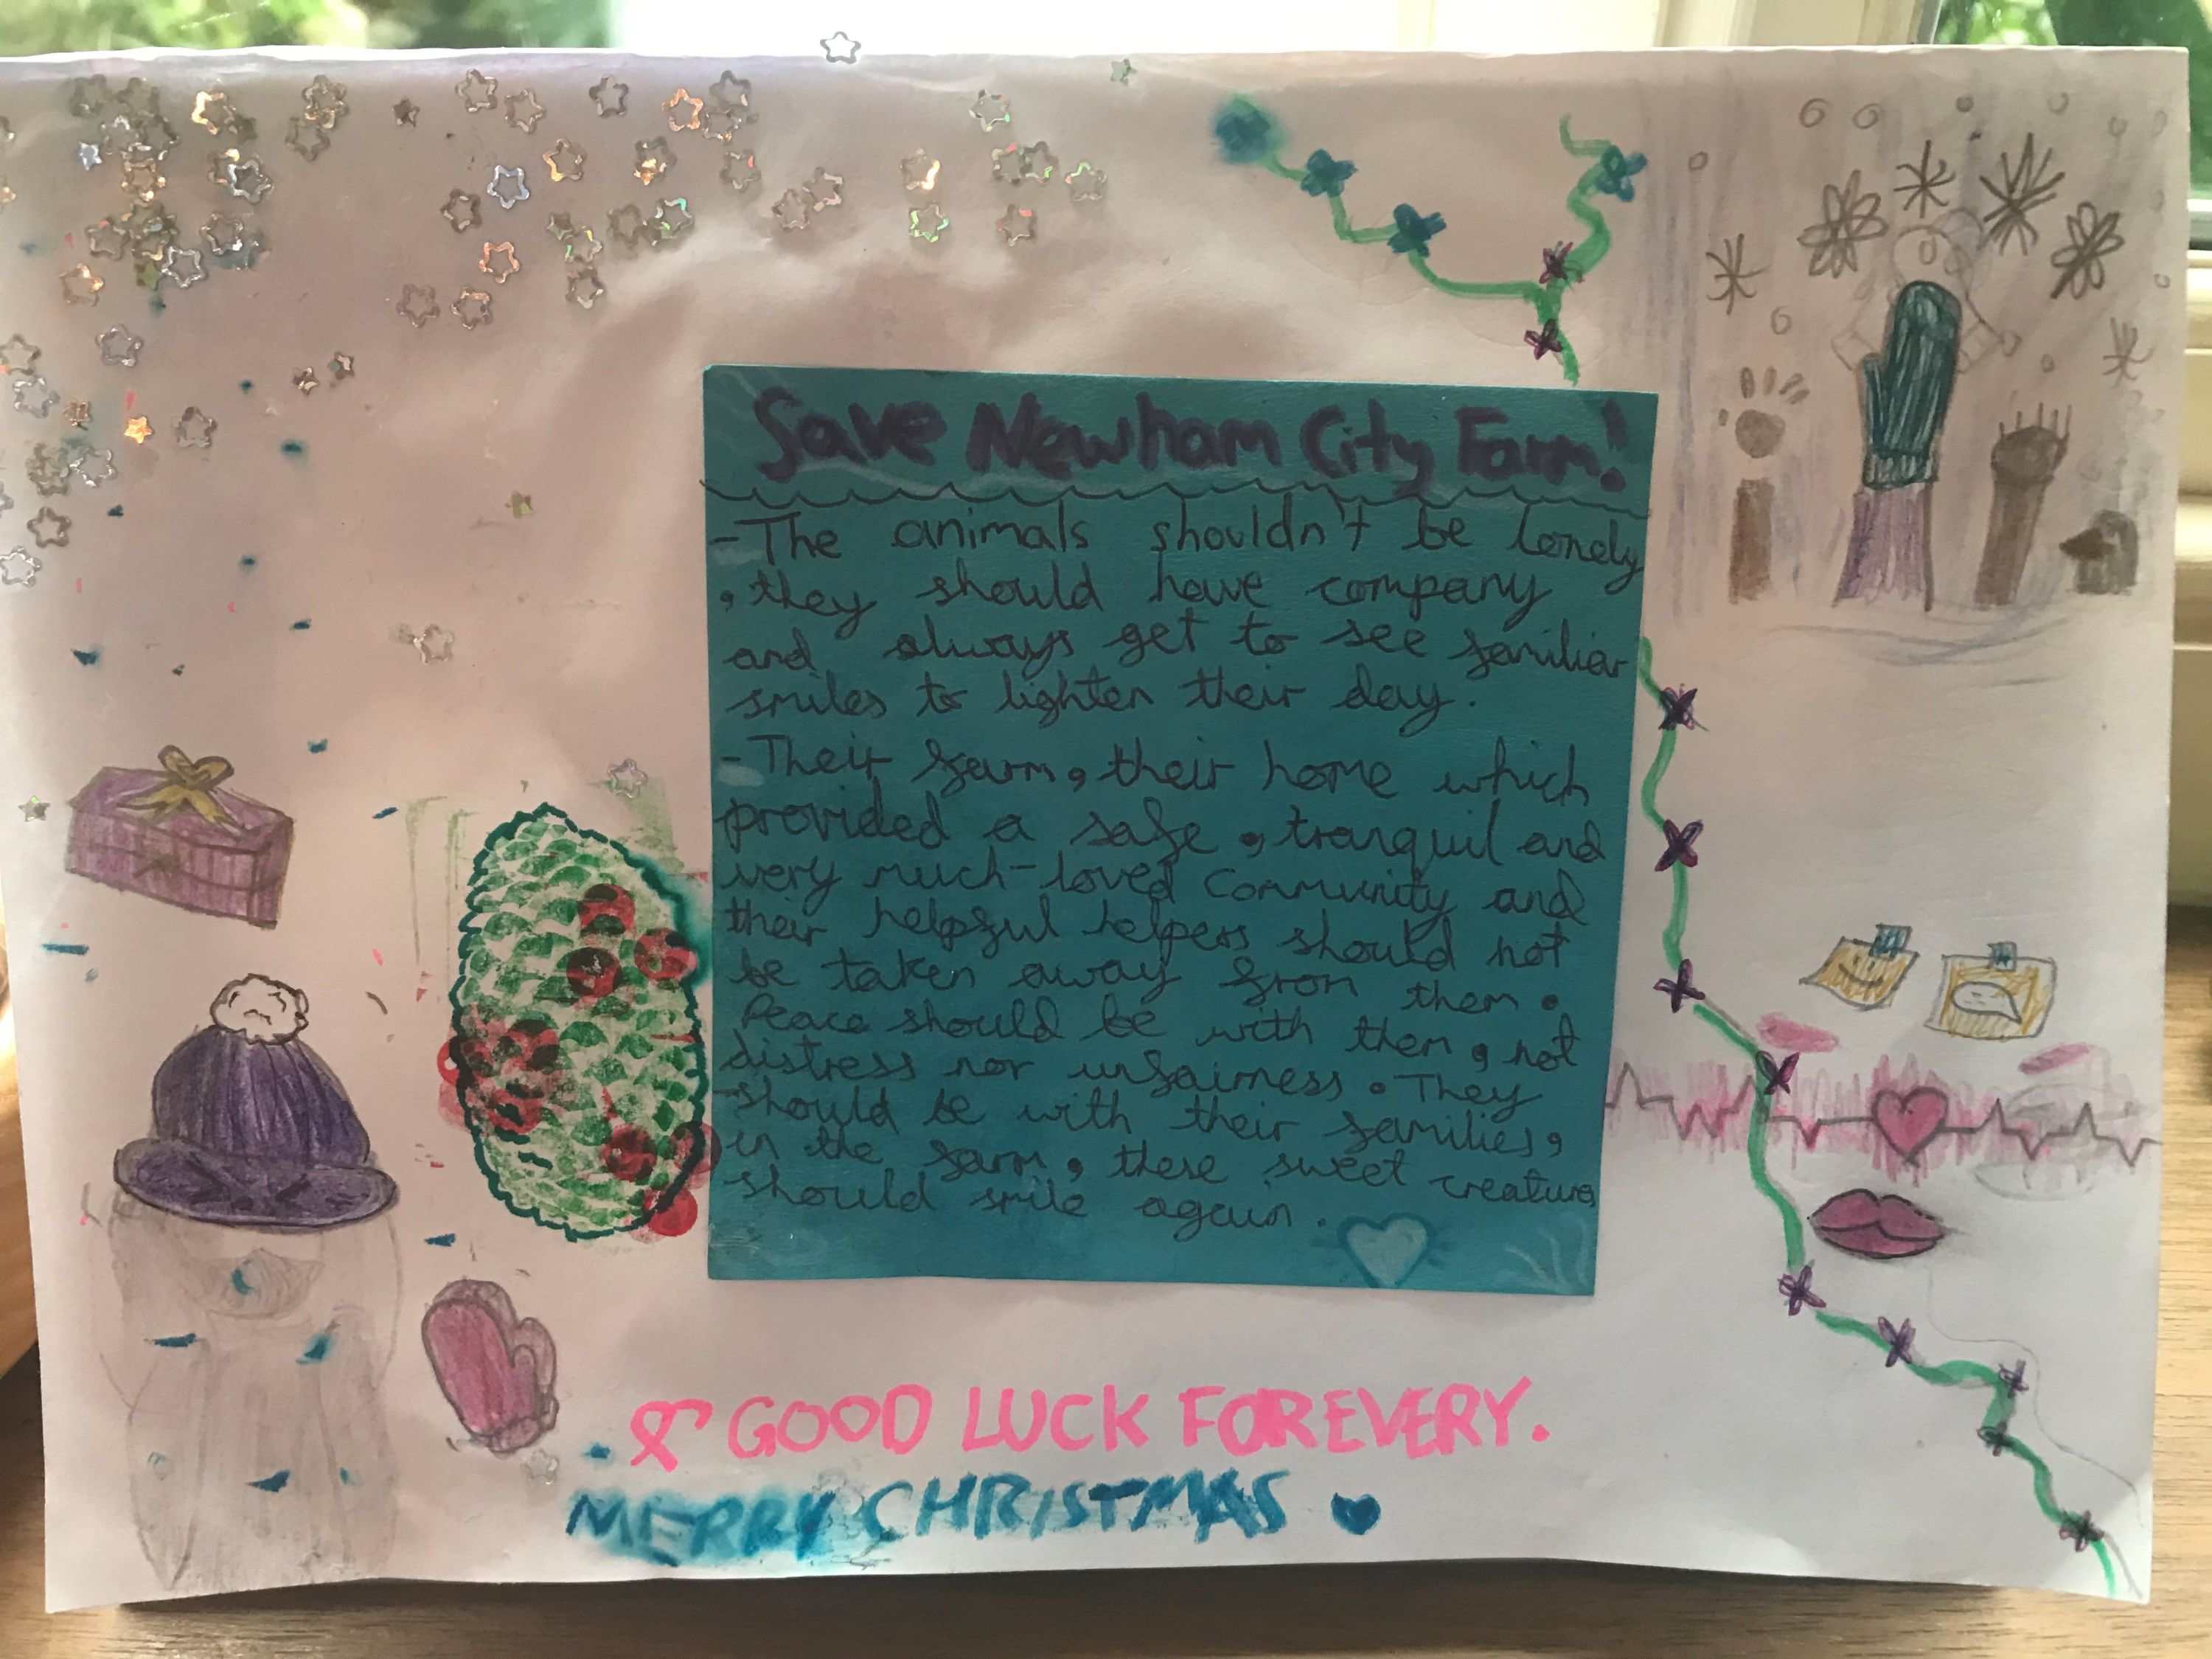 Save Newham City Farm!
- The animals shouldn't be lonely
, they should have company
and always get to see familiar
smiles to lighten their day.
- Their farm, their home which
provided a safe, tranquil and
very much-loved Community and
their helpful helpers should not
be taken away from them.
Peace should be with them, not
distress nor unfairness. They
should be with their families,
in the farm, these sweet creatures
should smile again.
GOOD LUCK FOREVERY.
MERRY CHRISTMAS